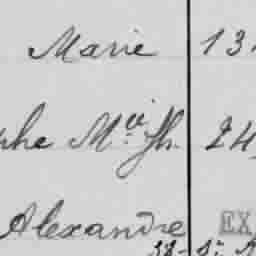 Marie 13
phe Mie Jh. 24
Alexandre EX